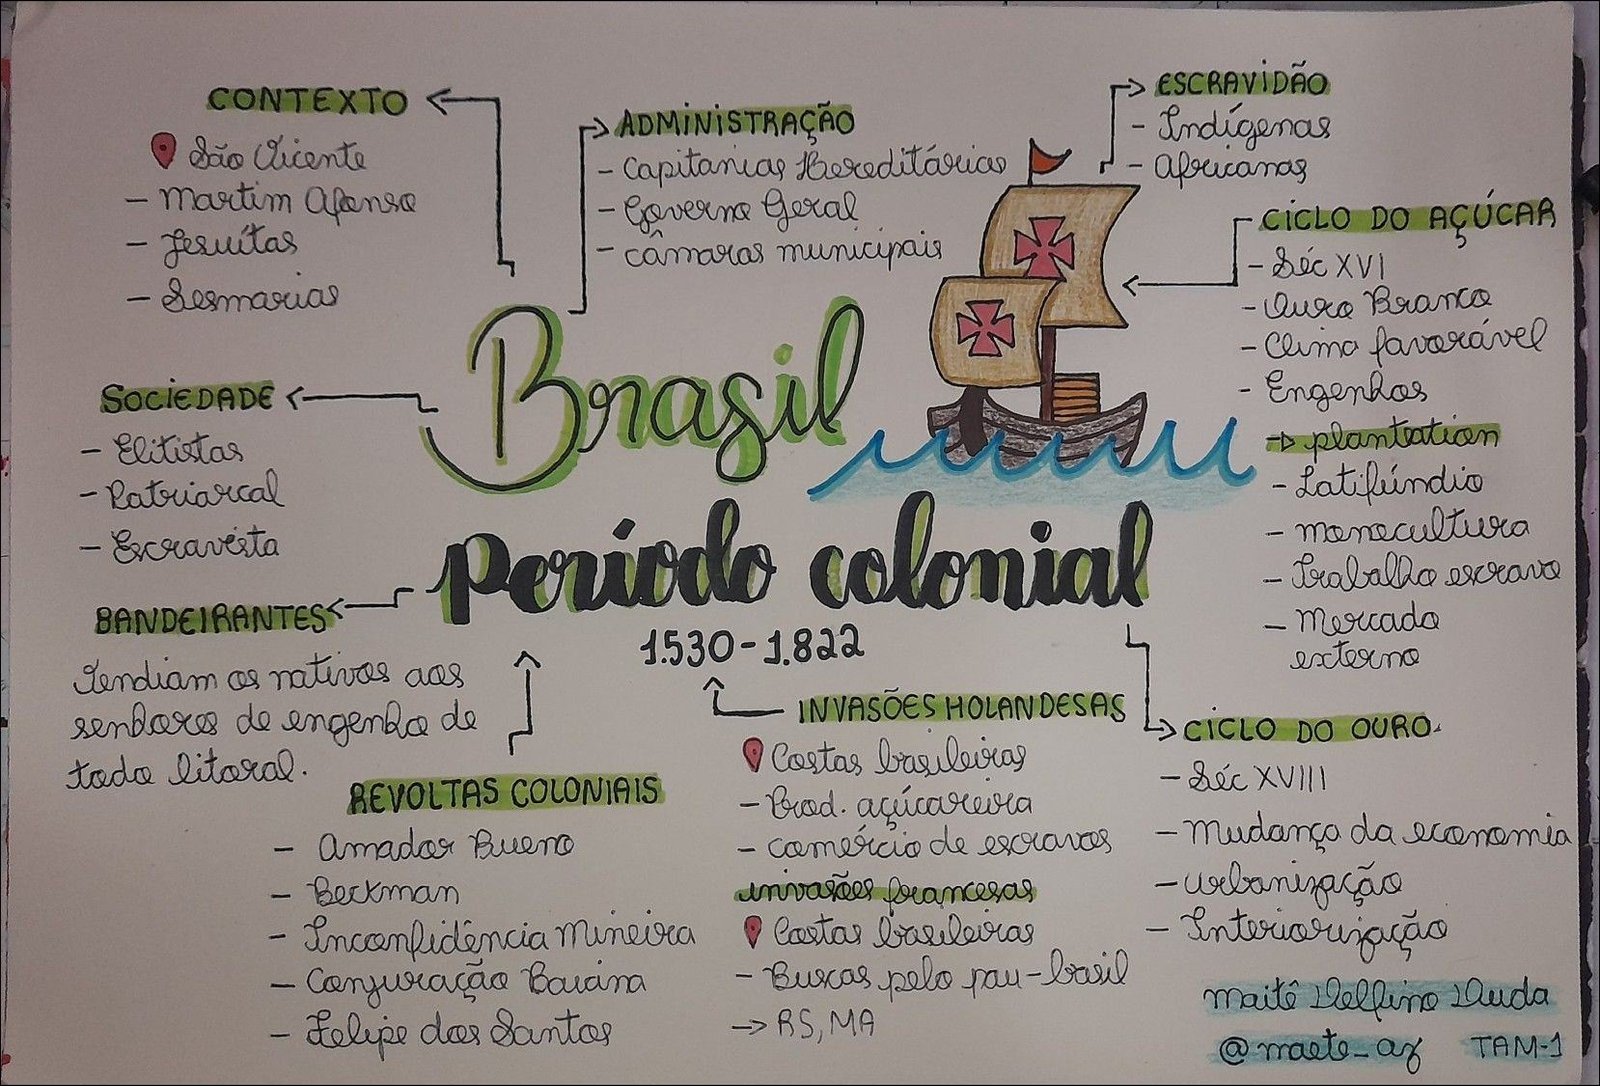 CONTEXTO
São Vicente
- Martim Afonso
- Jesuítas
- Sesmarias
ADMINISTRAÇÃO
- Capitanias Hereditárias
- Governo Geral
- câmaras municipais
ESCRAVIDÃO
- Indígenas
- Africanos
CICLO DO AÇÚCAR
- Séc XVI
- Ouro Branco
- Clima favorável
- Engenhos
→ plantation
- Latifúndio
- monocultura
- Trabalho escravo
- Mercado
externo
Brasil
Período colonial
1.530-1.822
SOCIEDADE
- Elitistas
- Patriarcal
- Escravista
BANDEIRANTES
Vendiam os nativos aos
senhores de engenho de
todo litoral.
REVOLTAS COLONIAIS
- Amador Bueno
- Beckman
- Inconfidência Mineira
- Conjuração Baiana
- Felipe dos Santos
INVASÕES HOLANDESAS
Costas brasileiras
- Prod. açúcareira
- comércio de escravos
invasões francesas
Costas brasileiras
- Buscas pelo pau-brasil
→ RS, MA
CICLO DO OURO
- Séc XVIII
- Mudança da economia
- urbanização
- Interiorização
Maitê Delfino Duda
@maete_az TAM-1